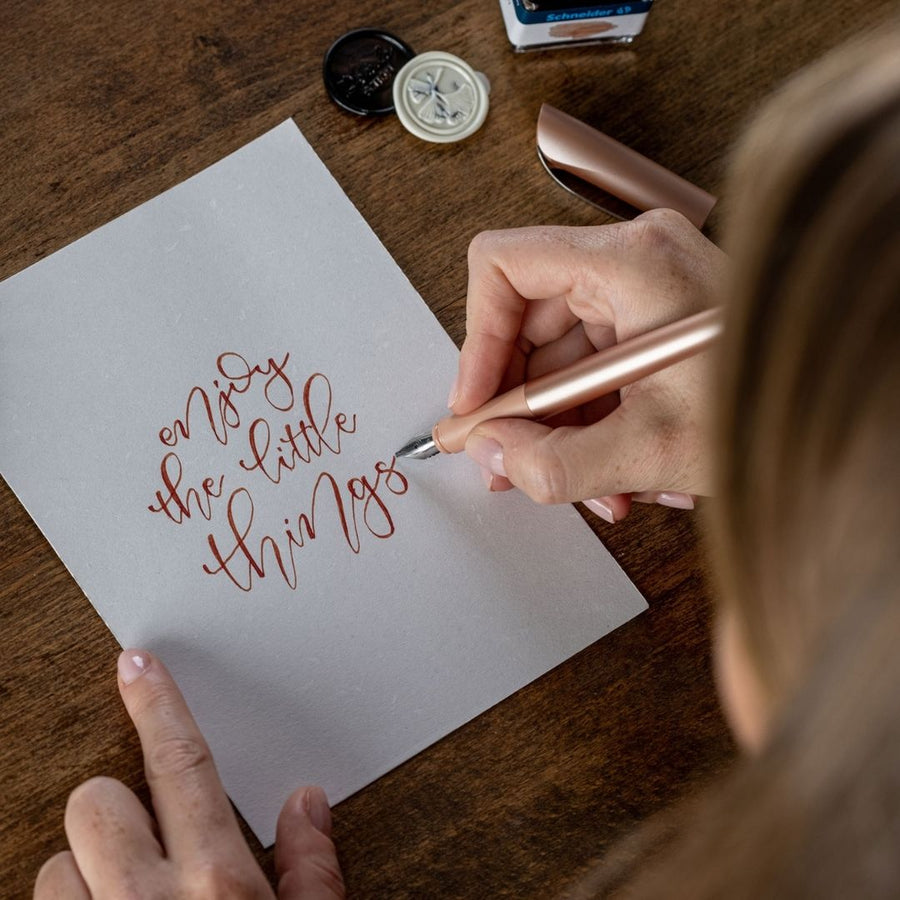 Schneider
enjoy
the little
things